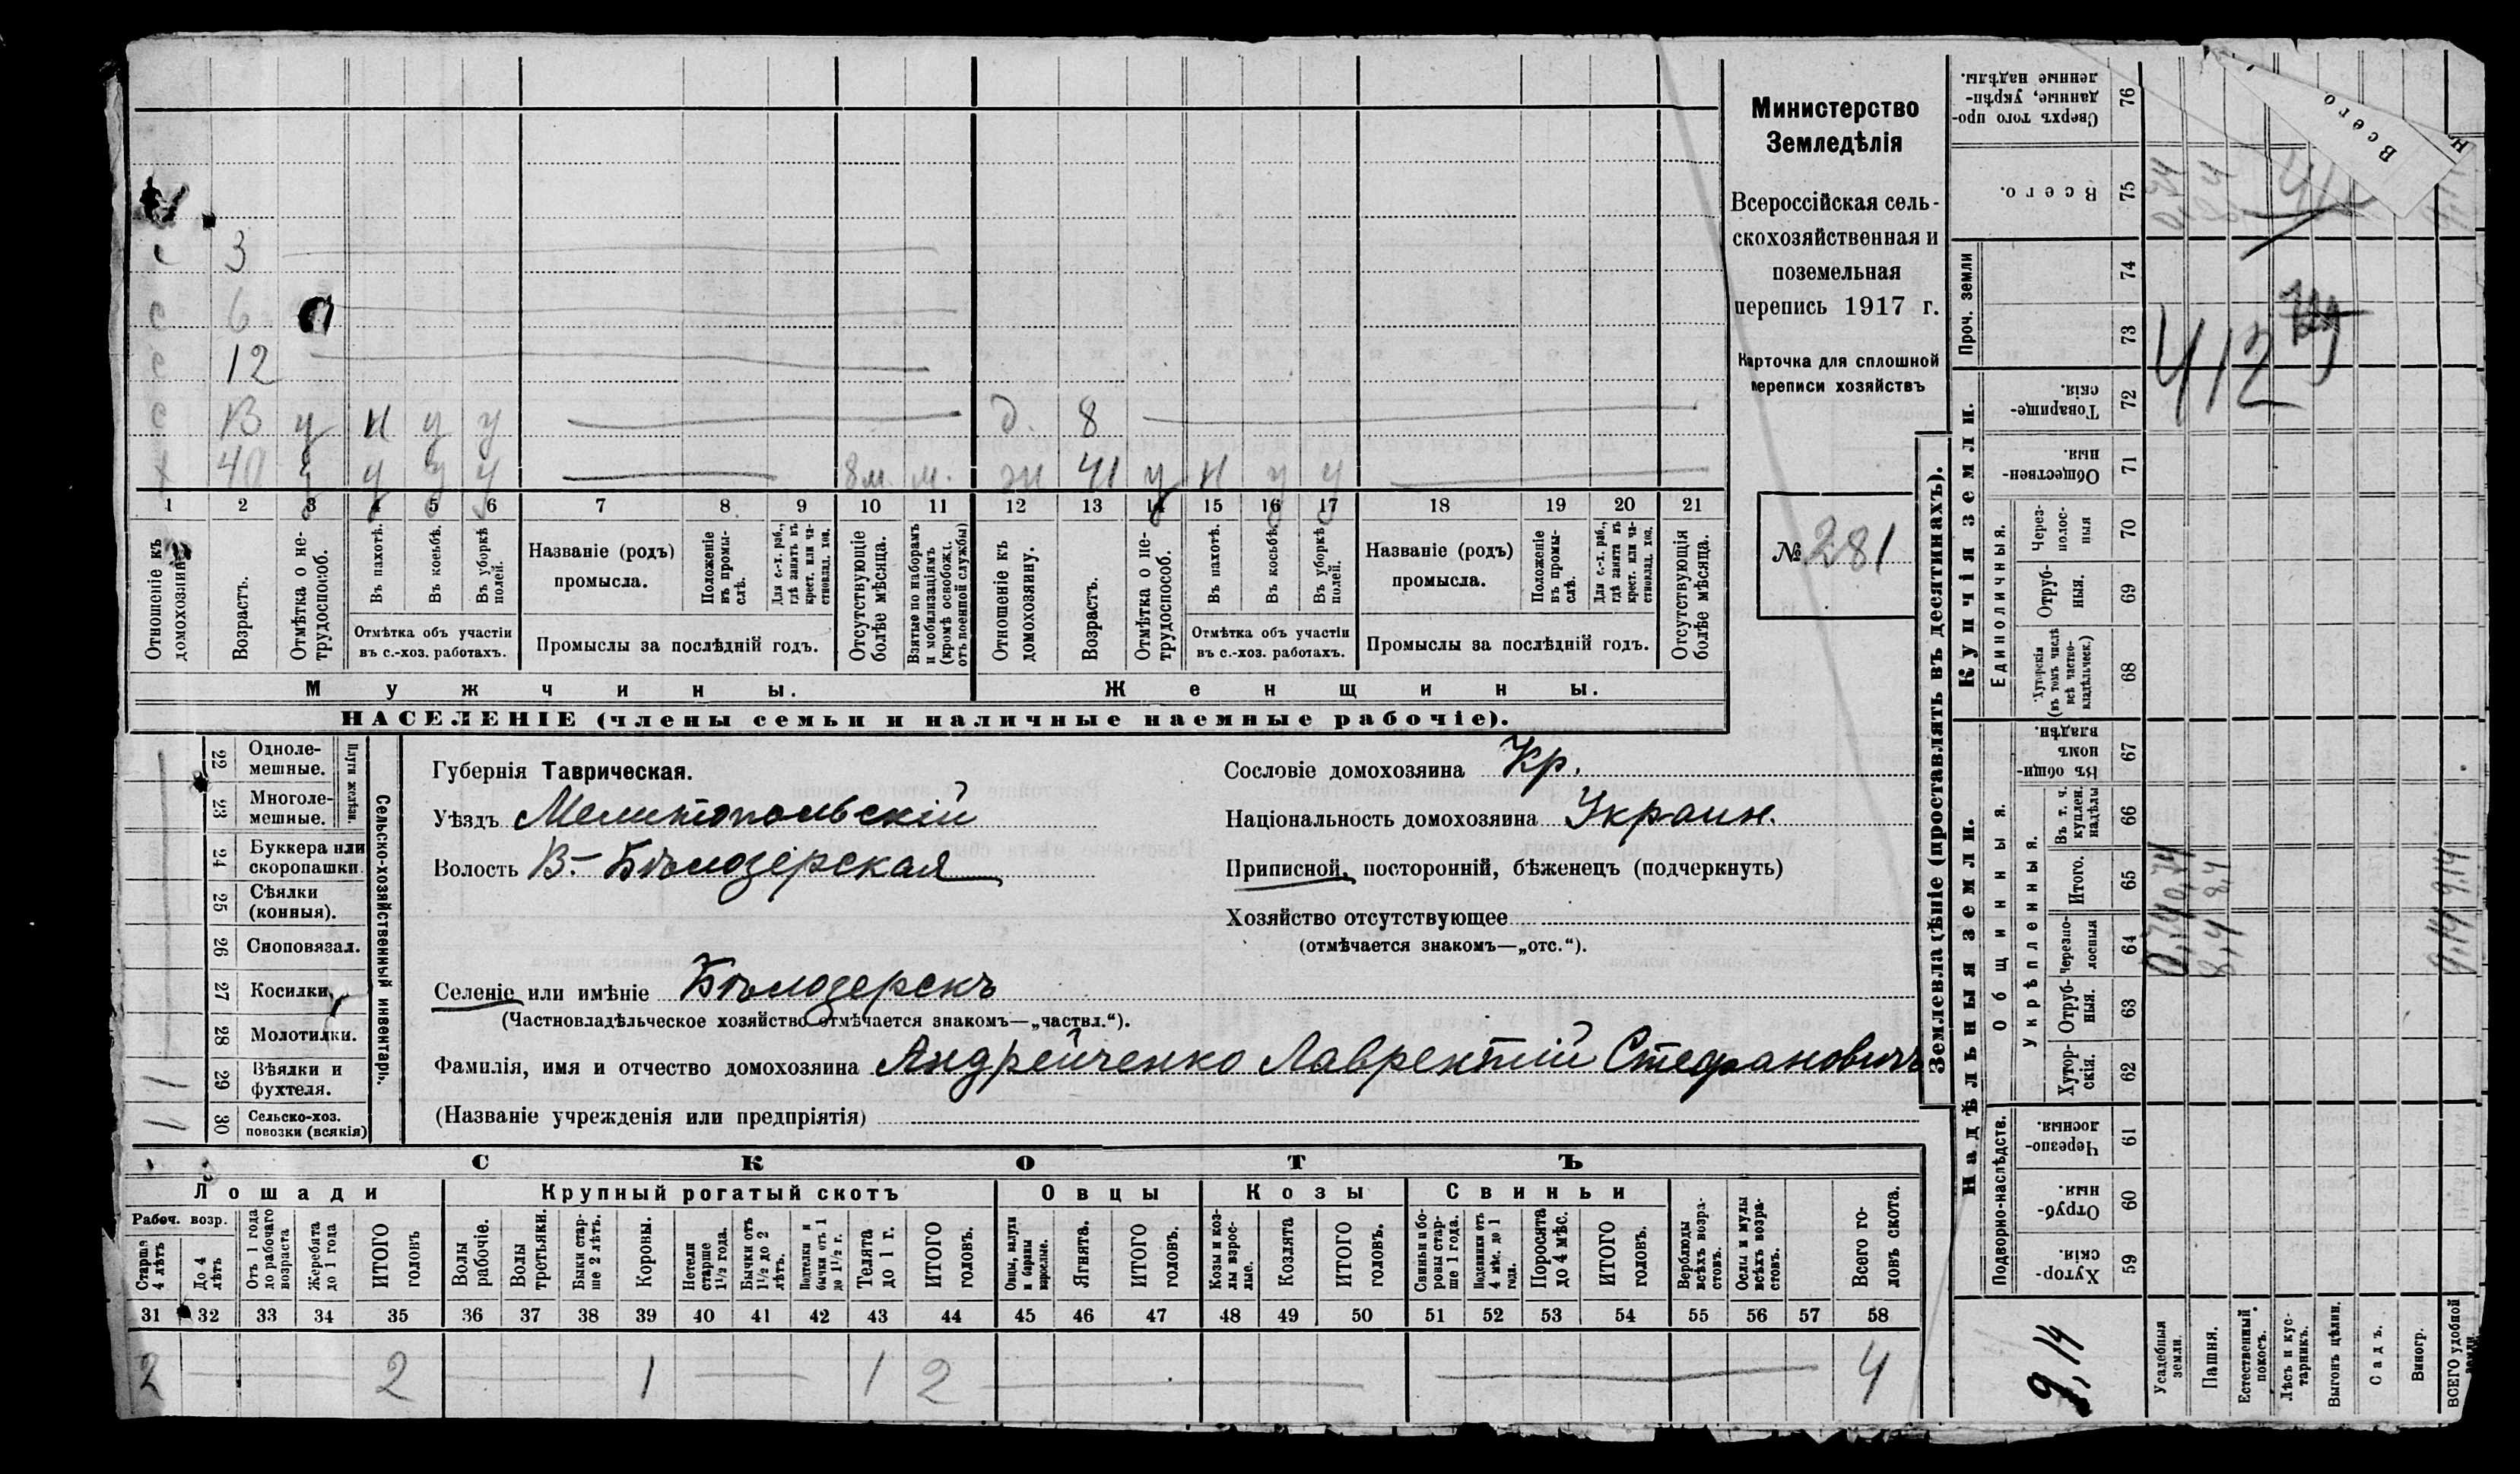 3
6
12
с 13 у н у у д. 8
х 40 у у у у 8м. м. ж 41 у н у у
1 2 3 4 5 6 7 8 9 10 11 12 13 14 15 16 17 18 19 20 21
Отношеніе къ домохозяину.
Возрастъ.
Отмѣтка о не-трудоспособ.
Въ пахотѣ.
Въ косьбѣ.
Въ уборкѣ полей.
Отмѣтка объ участіи
въ с.-хоз. работахъ.
Названіе (родъ)
промысла.
Положеніе въ промы-слѣ.
Для с.-х. раб., гдѣ занятъ въ крест. или ча-стновлад. хоз.
Промыслы за послѣдній годъ.
Отсутствующіе болѣе мѣсяца.
Взятые по наборамъ и мобилизаціямъ (кромѣ освобожд. отъ военной службы)
Отношеніе къ домохозяину.
Возрастъ.
Отмѣтка о не-трудоспособ.
Въ пахотѣ.
Въ косьбѣ.
Въ уборкѣ полей.
Отмѣтка объ участіи
въ с.-хоз. работахъ.
Названіе (родъ)
промысла.
Положеніе въ промы-слѣ.
Для с.-х. раб., гдѣ занята въ крест. или ча-стновлад. хоз.
Промыслы за послѣдній годъ.
Отсутствующія болѣе мѣсяца.
Мужчины. Женщины.
НАСЕЛЕНІЕ (члены семьи и наличные наемные рабочіе).
Министерство
Земледѣлія
Всероссійская сель-
скохозяйственная и
поземельная
перепись 1917 г.
Карточка для сплошной
переписи хозяйствъ
№ 281
Сельско-хозяйственный инвентарь.
Плуги желѣзн.
22 Одноле-мешные.
23 Многоле-мешные.
24 Буккера или скоропашки.
25 Сѣялки (конныя).
26 Сноповязал.
27 Косилки.
28 Молотилки.
29 Вѣялки и фухтеля. 1
30 Сельско-хоз. повозки (всякія) 1
Губернія Таврическая.
Уѣздъ Мелитопольскій
Волость В.-Бѣлозерская
Селеніе или имѣніе Бѣлозерскъ
(Частновладѣльческое хозяйство отмѣчается знакомъ—„частвл.“).
Фамилія, имя и отчество домохозяина Андрейченко Лаврентій Стефановичъ
(Названіе учрежденія или предпріятія)
Сословіе домохозяина Кр.
Національность домохозяина Украин.
Приписной, посторонній, бѣженецъ (подчеркнуть)
Хозяйство отсутствующее
(отмѣчается знакомъ—„отс.“).
СКОТЪ
Лошади Крупный рогатый скотъ Овцы Козы Свиньи
Рабоч. возр.
Старше 4 лѣтъ
До 4 лѣтъ
Отъ 1 года до рабочаго возраста
Жеребята до 1 года
ИТОГО головъ
Волы рабочіе.
Волы третьяки.
Быки стар-ше 2 лѣтъ.
Коровы.
Нетели старше 1½ года.
Бычки отъ 1½ до 2 лѣтъ.
Подтелки и бычки отъ 1 до 1½ г.
Телята до 1 г.
ИТОГО головъ.
Овцы, валухи и бараны взрослые.
Ягнята.
ИТОГО головъ.
Козы и коз-лы взрос-лые.
Козлята
ИТОГО головъ.
Свиньи и бо-ровы стар-ше 1 года.
Подсвинки отъ 4 мѣс. до 1 года.
Поросята до 4 мѣс.
ИТОГО головъ.
Верблюды всѣхъ возра-стовъ.
Ослы и мулы всѣхъ возра-стовъ.
Всего го-ловъ скота.
31 32 33 34 35 36 37 38 39 40 41 42 43 44 45 46 47 48 49 50 51 52 53 54 55 56 57 58
2 2 1 1 2 4
Землевладѣніе (проставлять въ десятинахъ).
Надѣльныя земли. Купчія земли. Проч. земли
Подворно-наслѣдств. Общинныя. Единоличныя.
Укрѣпленныя.
Хутор-скія. 59
Отруб-ныя. 60
Черезпо-лосныя. 61
Хутор-скія. 62
Отруб-ныя. 63
Черезпо-лосныя 64
Итого. 65
Въ т. ч. куплен. надѣлы 66
Въ общин-номъ владѣн. 67
Хуторскія (въ томъ числѣ всѣ частно-владѣльческ.) 68
Отруб-ныя. 69
Через-полос-ныя 70
Обществен-ныя. 71
Товарище-скія. 72
73
74
Всего. 75
Сверхъ того про-данные, укрѣп-ленные надѣлы. 76
Усадебныя земли. 0,74 0,74
Пашня. 8,4 8,4
Естественный покосъ.
Лѣсъ и кус-тарникъ.
Выгонъ цѣлин.
Садъ.
Виногр.
ВСЕГО удобной земли. 9,14 9,14
9,14
412
Всего